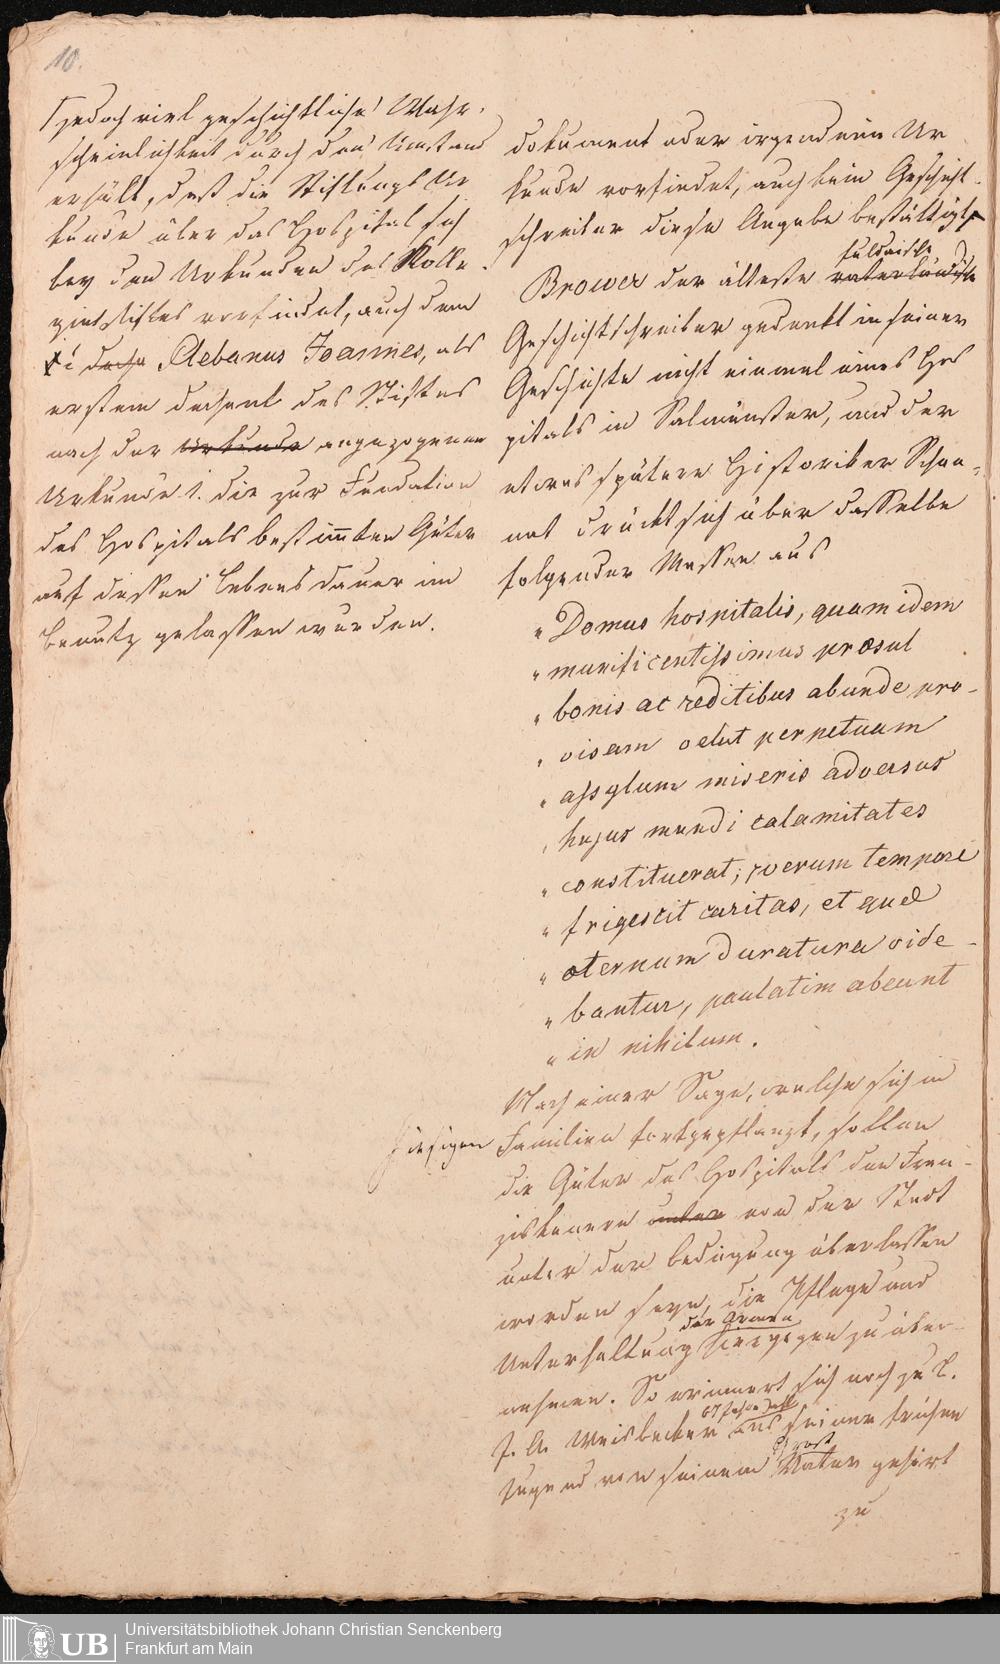 10.
jedoch viel geschichtliche Wahr-
scheinlichkeit durch den Umstand
erhält, daß die Stiftungs Ur
kunde über das Hospital sich
bey den Urkunden des Kolle-
giatstiftes vorfindet, auch dem
Plebanus Joannes, als
erstem dechant des Stiftes
nach der Urkunde angezogenen
Urkunde 1. die zur Fundation
des Hospitals bestim̅ten Güter
auf dessen Lebensdauer im
Benutz gelassen wurden.
dokument oder irgend eine Ur
kunde vorfindet, auch kein Geschicht-
schreiber diese Angabe bestättigt
fuldaische
Brower der älteste vaterländische
Geschichtschreiber gedenkt in seiner
Geschichte nicht einmal eines Hos
pitals in Salmünster, und der
etwas spätere Historiker Schan-
nat drückt sich über dasselbe
folgender Massen aus
„ Domus hospitalis, quam idem
„ munificentissimus præsul
„ bonis ac reditibus abunde pro-
„ visam velut perpetuam
„ assylum miseris adversus
„ hujus mundi calamitates
„ constituerat; verum tempore
„ frigescit caritas, et quæ
„ æternum duratura vide-
„ bantur, paulatim abeunt
„ in nihilum.
Nach einer Sage, welche sich in
hiesigen Familien fortgepflanzt, sollen
die Güter des Hospitals den Fran-
ziskanern unter von der Stadt
unter der Bedingung überlassen
worden seyn, die Pflege und
der Armen
Unterhaltung hingegen zu über-
nehmen. So erinnert sich noch zu L.
67 Jahr alt
J. A. Weisbecker aus seiner frühen
Jugend von seinem Vater gehört
zu
Universitätsbibliothek Johann Christian Senckenberg
Frankfurt am Main
UB